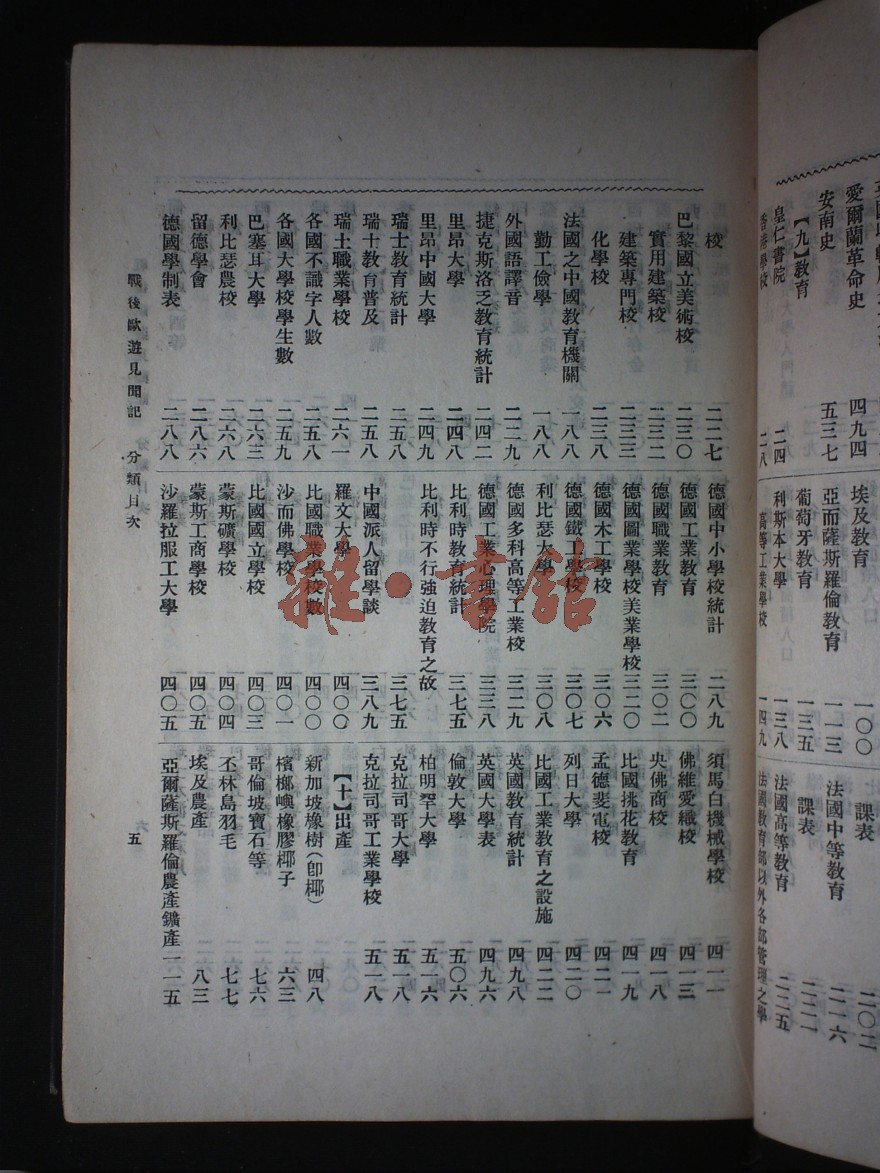 愛爾蘭革命史 四九四
安南史 五三七
【九】教育
皇仁書院 二四
香港學校 二八
埃及教育 一〇〇
亞而薩斯羅倫教育 一一三
葡萄牙教育 一三五
利斯本大學 一三八
高等工業學校 一四九
課表 二〇二
法國中等教育 二一六
課表 二二一
法國高等教育 二二五
法國教育部以外各部管理之學
校 二二七
巴黎國立美術校 二三〇
實用建築校 二三二
建築專門校 二三三
化學校 二三八
法國之中國教育機關 一八八
勤工儉學 一八八
外國語譯音 二二九
捷克斯洛乏教育統計 二四二
里昂大學 二四八
里昂中國大學 二四九
瑞士教育統計 二五八
瑞士教育普及 二五八
瑞士職業學校 二六一
各國不識字人數 二五八
各國大學校學生數 二五九
巴塞耳大學 二六三
利比瑟農校 二六八
留德學會 二八六
德國學制表 二八八
德國中小學校統計 二八九
德國工業教育 三〇〇
德國職業教育 三〇二
德國圖業學校美業學校 三二〇
德國木工學校 三〇六
德國鐵工學校 三〇七
利比瑟大學 三〇八
德國多科高等工業校 三二九
德國工業心理學院 三三八
比利時教育統計 三七五
比利時不行強迫教育之故 三七五
中國派人留學談 三八九
羅文大學 四〇〇
比國職業學校數 四〇〇
沙而佛學校 四〇一
比國國立學校 四〇三
蒙斯礦學校 四〇四
蒙斯工商學校 四〇五
沙羅拉服工大學 四〇五
須馬白機械學校 四一一
佛維愛織校 四一三
央佛商校 四一八
比國挑花教育 四一九
孟德斐電校 四二一
列日大學 四二〇
比國工業教育之設施 四二二
英國教育統計 四九八
英國大學表 四九六
倫敦大學 五〇六
柏明罕大學 五一六
克拉司哥大學 五一八
克拉司哥工業學校 五一八
【十】出產
新加坡橡樹(卽椰) 四八
檳榔嶼橡膠椰子 六三
哥倫坡寶石等 七六
丕林島羽毛 七七
埃及農產 八三
亞爾薩斯羅倫農產鑛產 一一五
戰後歐遊見聞記 分類目次 五
雜·書館